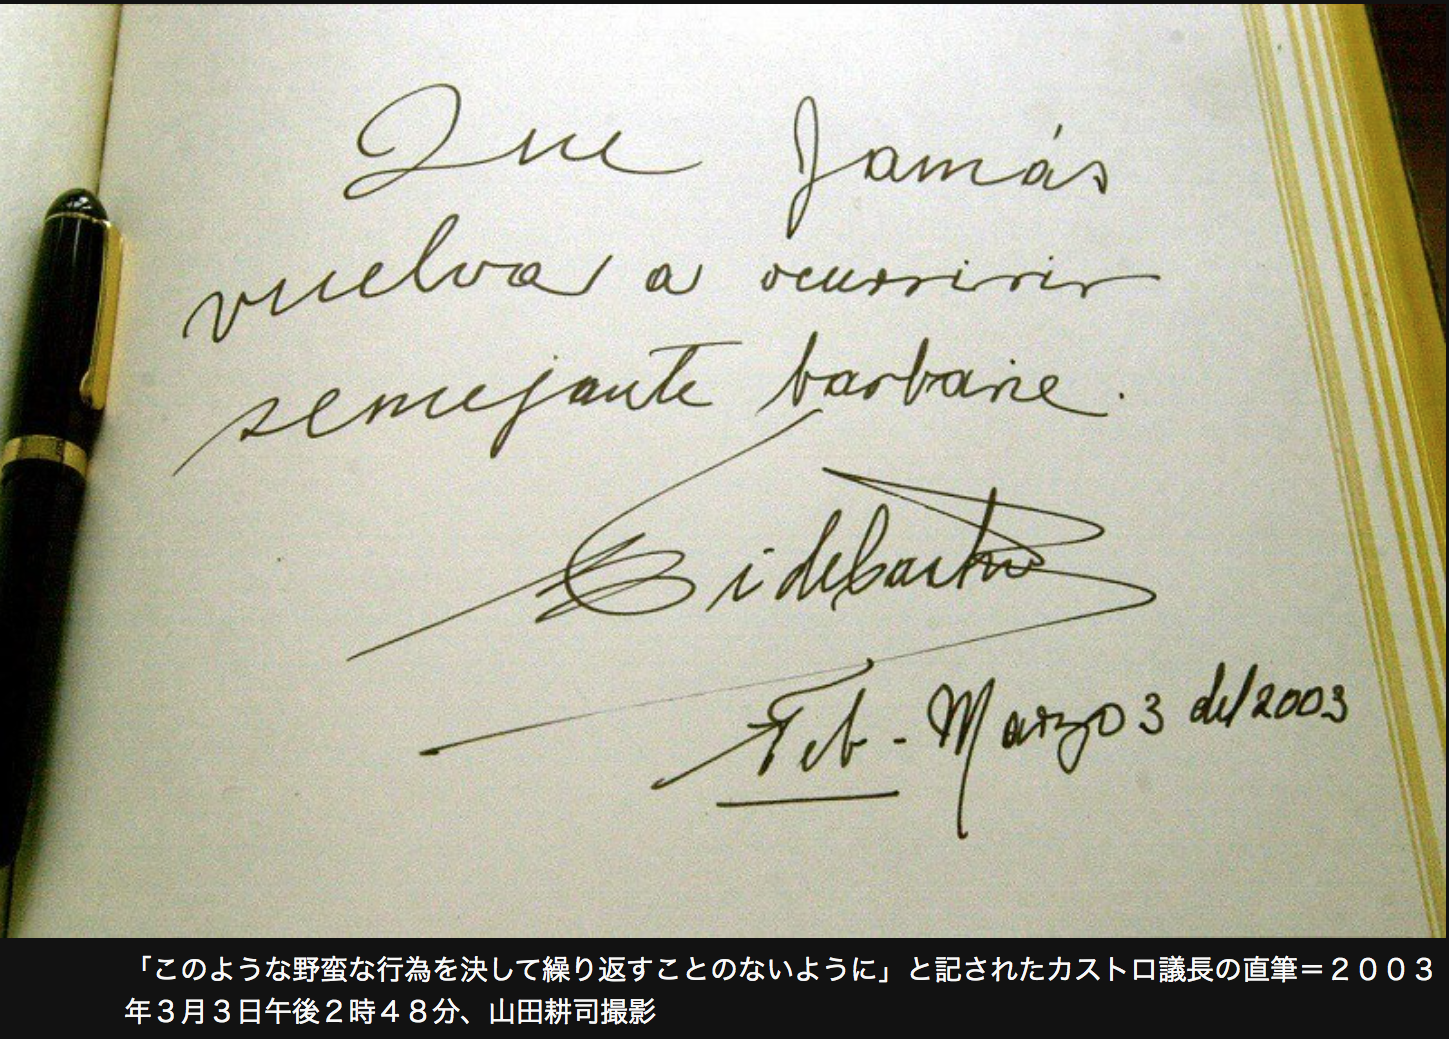 Que Jamás
vuelva a ocurrir
semejante barbarie.
Fidel Castro
Feb - Marzo 3 del 2003
「このような野蛮な行為を決して繰り返すことのないように」と記されたカストロ議長の直筆＝２００３
年３月３日午後２時４８分、山田耕司撮影